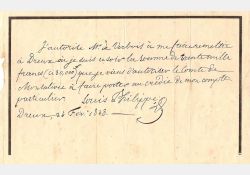 J'autorise Mr. de Verbois à me faire remettre
à Dreux où je suis la somme de trente mille
francs que je viens d'autoriser le Comte de
Montalivet à faire porter au crédit de mon compte
particulier.
Louis Philippe
Dreux, 26 Fév. 1848.